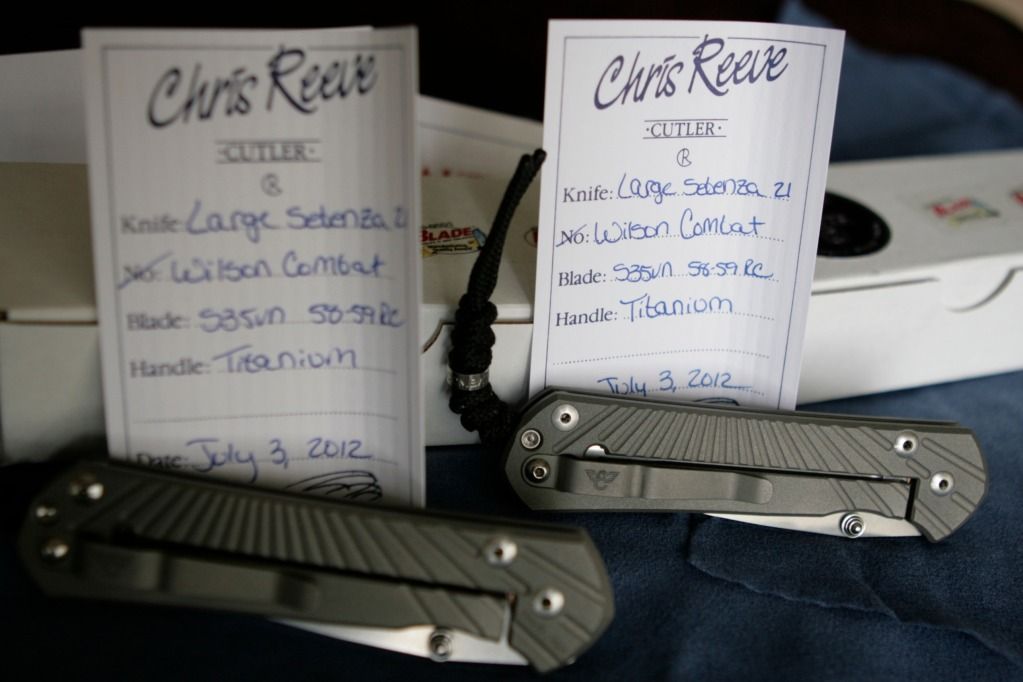 Chris Reeve
·CUTLER·
®
Knife: Large Sebenza 21
No: Wilson Combat
Blade: S35VN 58-59 RC
Handle: Titanium
Date: July 3, 2012
BLADE
Chris Reeve
·CUTLER·
®
Knife: Large Sebenza 21
No: Wilson Combat
Blade: S35VN 58-59 RC
Handle: Titanium
July 3, 2012